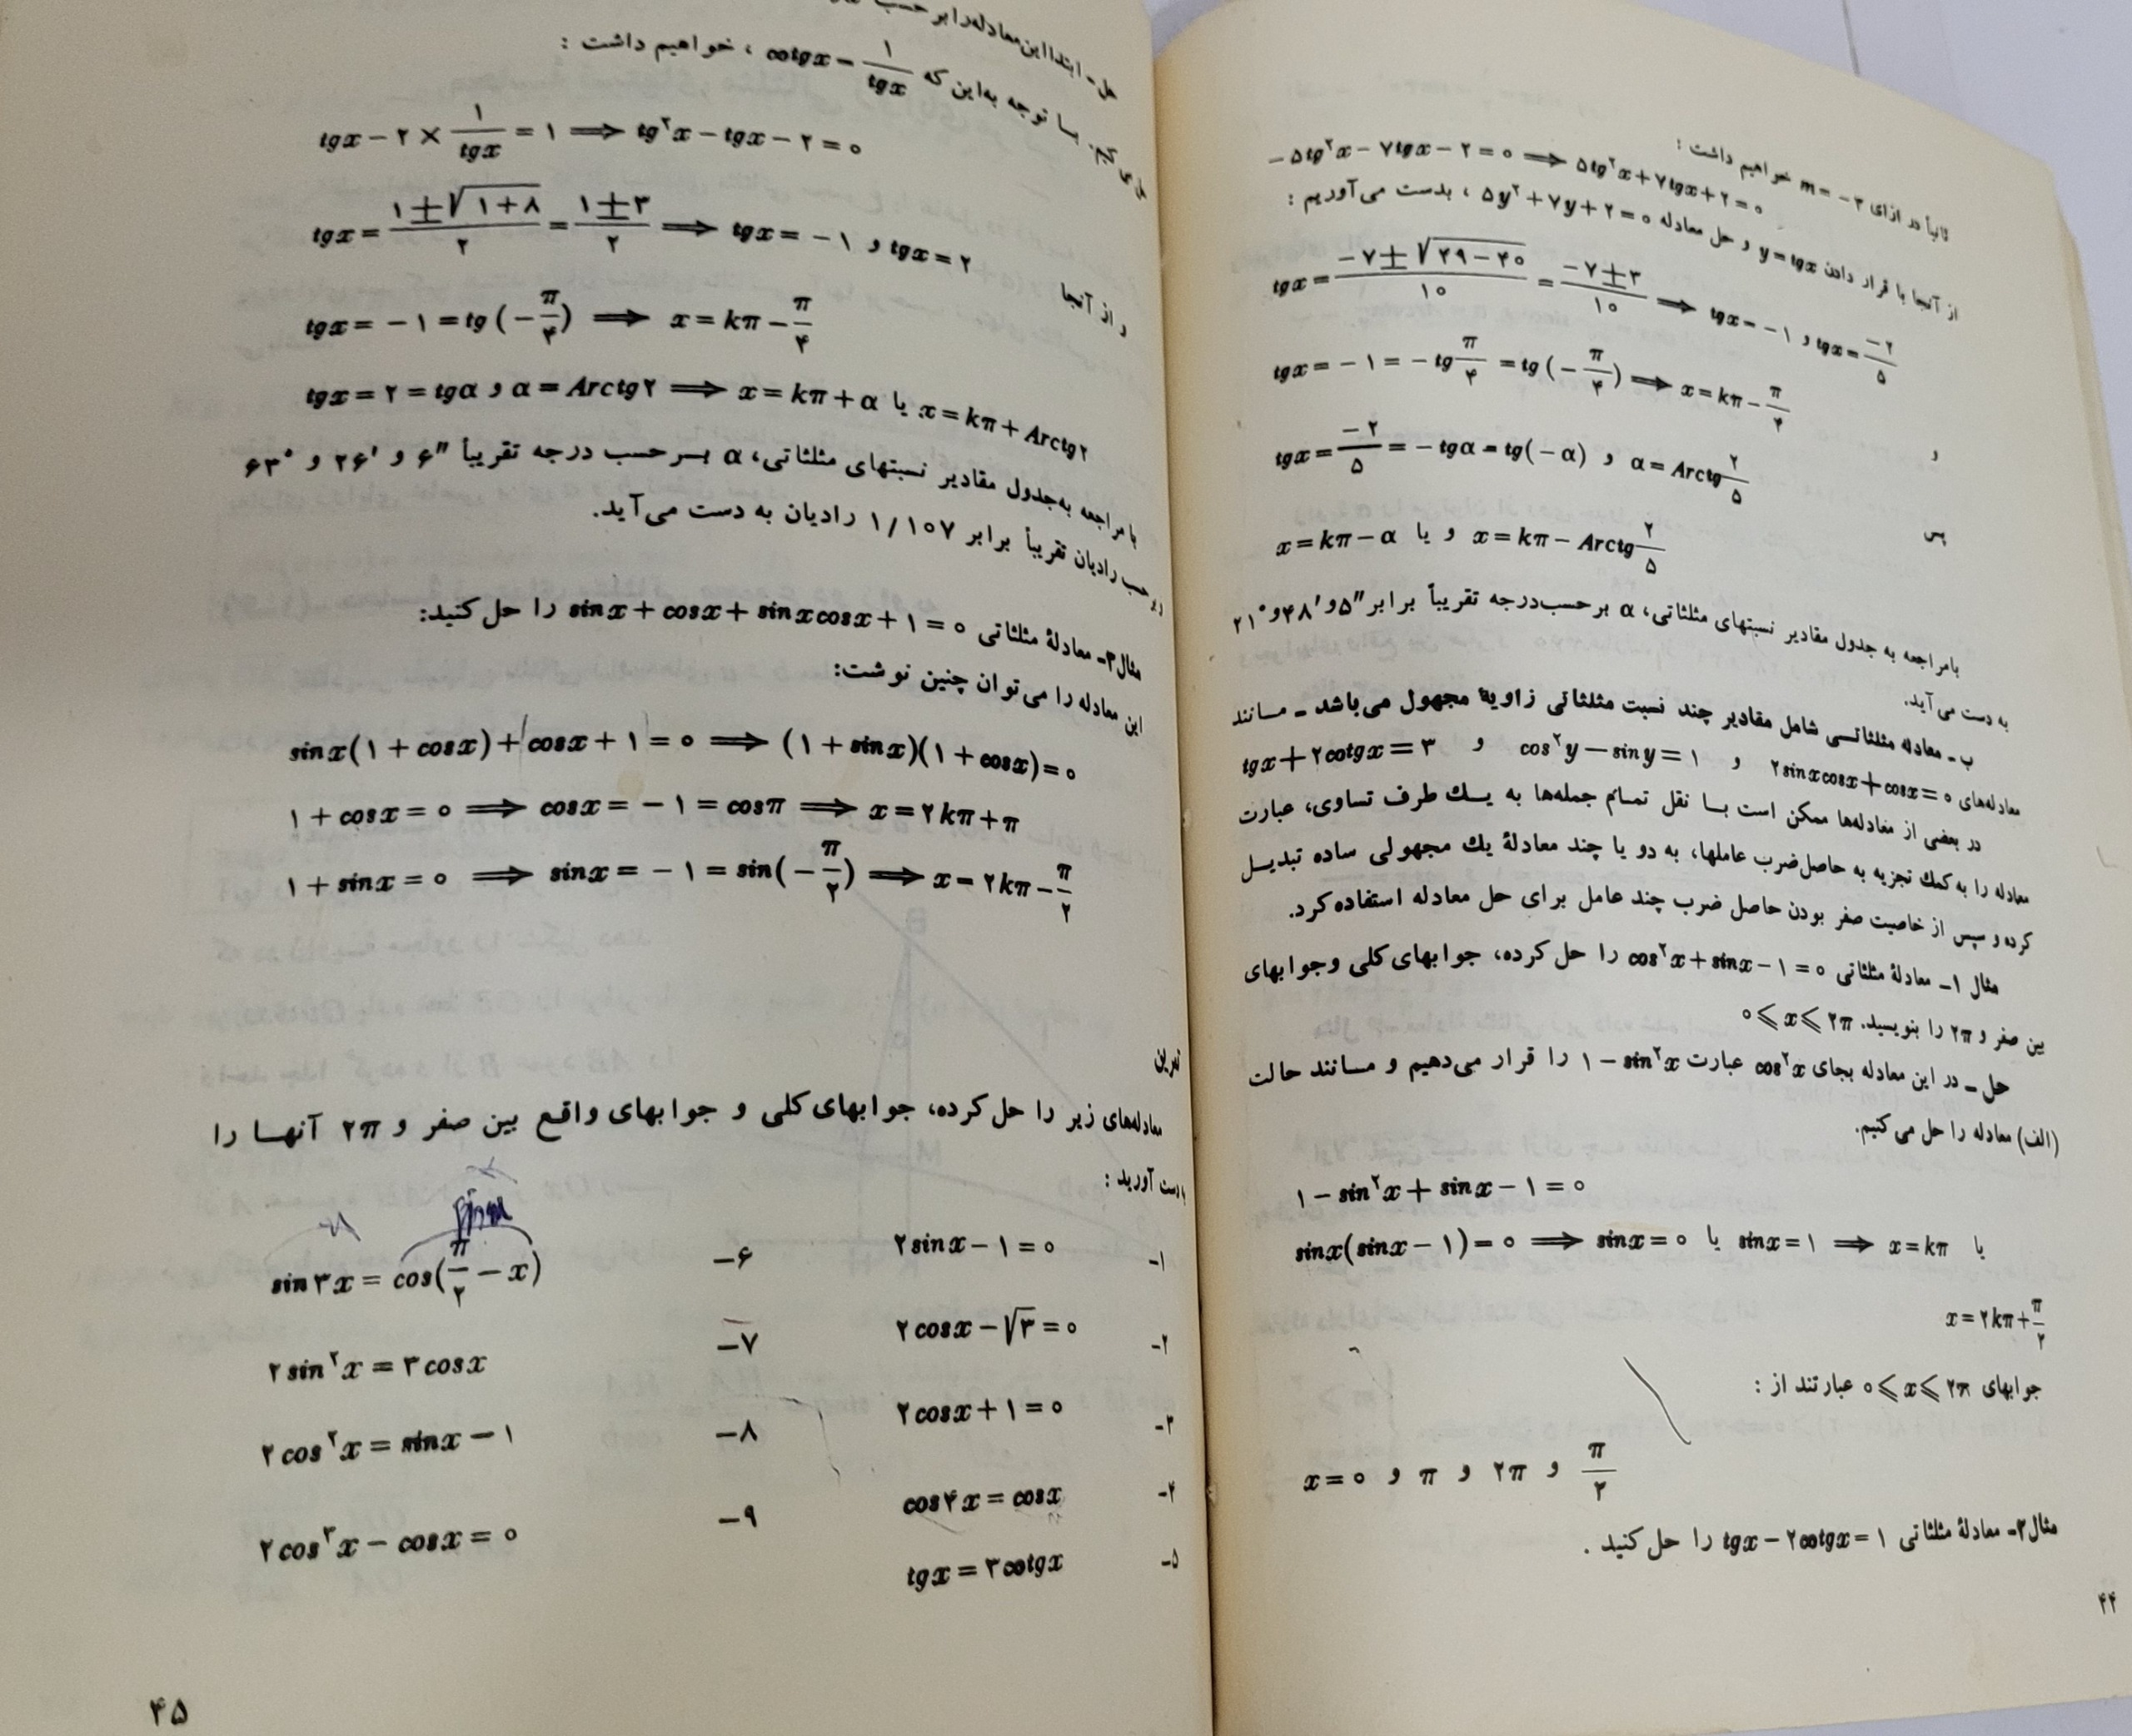 ثانیاً در ازای m = −۳ خواهیم داشت :
−۵tg²x − ۷tgx − ۲ = ۰ ⟹ ۵tg²x + ۷tgx + ۲ = ۰
از آنجا با قرار دادن y = tgx و حل معادله ۵y² + ۷y + ۲ = ۰ ، بدست می‌آوریم :
tgx = (−۷ ± √(۴۹ − ۴۰))/۱۰ = (−۷ ± ۳)/۱۰ ⟹ tgx = −۱ و tgx = −۲/۵
tgx = −۱ = −tg π/۴ = tg(−π/۴) ⟹ x = kπ − π/۴
و
tgx = −۲/۵ = −tgα = tg(−α) و α = Arctg ۲/۵
پس
x = kπ − α و یا x = kπ − Arctg ۲/۵
بامراجعه به جدول مقادیر نسبتهای مثلثاتی، α برحسب‌درجه تقریباً برابر ″۵ و ′۴۸ و °۲۱
به دست می‌آید.
ب ـ معادله مثلثاتـی شامل مقادیر چند نسبت مثلثاتی زاویهٔ مجهول می‌باشد ـ مـانند
معادله‌های ۲sinxcosx + cosx = ۰ و cos²y − siny = ۱ و tgx + ۲cotgx = ۳
در بعضی از معادله‌ها ممکن است بـا نقل تمـام جمله‌ها به یـك طرف تساوی، عبارت
معادله را به‌کمك تجزیه به حاصل‌ضرب عاملها، به دو یا چند معادلهٔ یك مجهولی ساده تبدیـل
کرده و سپس از خاصیت صفر بودن حاصل ضرب چند عامل برای حل معادله استفاده کرد.
مثال ۱ـ معادلهٔ مثلثاتی cos²x + sinx − ۱ = ۰ را حل کرده، جوابهای کلی وجوابهای
بین صفر و ۲π را بنویسید. ۰ ⩽ x ⩽ ۲π
حل ـ در این معادله بجای cos²x عبارت ۱ − sin²x را قرار می‌دهیم و مـانند حالت
(الف) معادله را حل می‌کنیم.
۱ − sin²x + sinx − ۱ = ۰
sinx(sinx − ۱) = ۰ ⟹ sinx = ۰ یا sinx = ۱ ⟹ x = kπ یا
x = ۲kπ + π/۲
جوابهای ۰ ⩽ x ⩽ ۲π عبارتند از :
x = ۰ و π و ۲π و π/۲
مثال۲ـ معادلهٔ مثلثاتی tgx − ۲cotgx = ۱ را حل کنید .
۴۴
حل ـ ابتدا این معادله را بر حسب
بـا توجه به‌این که cotgx = ۱/tgx ، خواهیم داشت :
tgx − ۲ × ۱/tgx = ۱ ⟹ tg²x − tgx − ۲ = ۰
tgx = (۱ ± √(۱+۸))/۲ = (۱ ± ۳)/۲ ⟹ tgx = −۱ و tgx = ۲
و از آنجا
tgx = −۱ = tg(−π/۴) ⟹ x = kπ − π/۴
tgx = ۲ = tgα و α = Arctg۲ ⟹ x = kπ + α یا x = kπ + Arctg۲
با مراجعه به‌جدول مقادیر نسبتهای مثلثاتی، α بـرحسب درجه تقریباً ″۶ و ′۲۶ و °۶۳
حسب رادیان تقریباً برابر ۱/۱۰۷ رادیان به دست می‌آید.
مثال۳ـ معادلهٔ مثلثاتی sinx + cosx + sinxcosx + ۱ = ۰ را حل کنید:
این معادله را می‌توان چنین نوشت:
sinx(۱ + cosx) + cosx + ۱ = ۰ ⟹ (۱ + sinx)(۱ + cosx) = ۰
۱ + cosx = ۰ ⟹ cosx = −۱ = cosπ ⟹ x = ۲kπ + π
۱ + sinx = ۰ ⟹ sinx = −۱ = sin(−π/۲) ⟹ x = ۲kπ − π/۲
تمرین
معادله‌های زیر را حل کرده، جوابهای کلی و جوابهای واقـع بین صفر و ۲π آنهـا را
بدست آورید :
۱− ۲sinx − ۱ = ۰
۲− ۲cosx − √۳ = ۰
۳− ۲cosx + ۱ = ۰
۴− cos۴x = cosx
۵− tgx = ۳cotgx
۶− sin۳x = cos(π/۲ − x)
۷− ۲sin²x = ۳cosx
۸− ۲cos²x = sinx − ۱
۹− ۲cos³x − cosx = ۰
۴۵